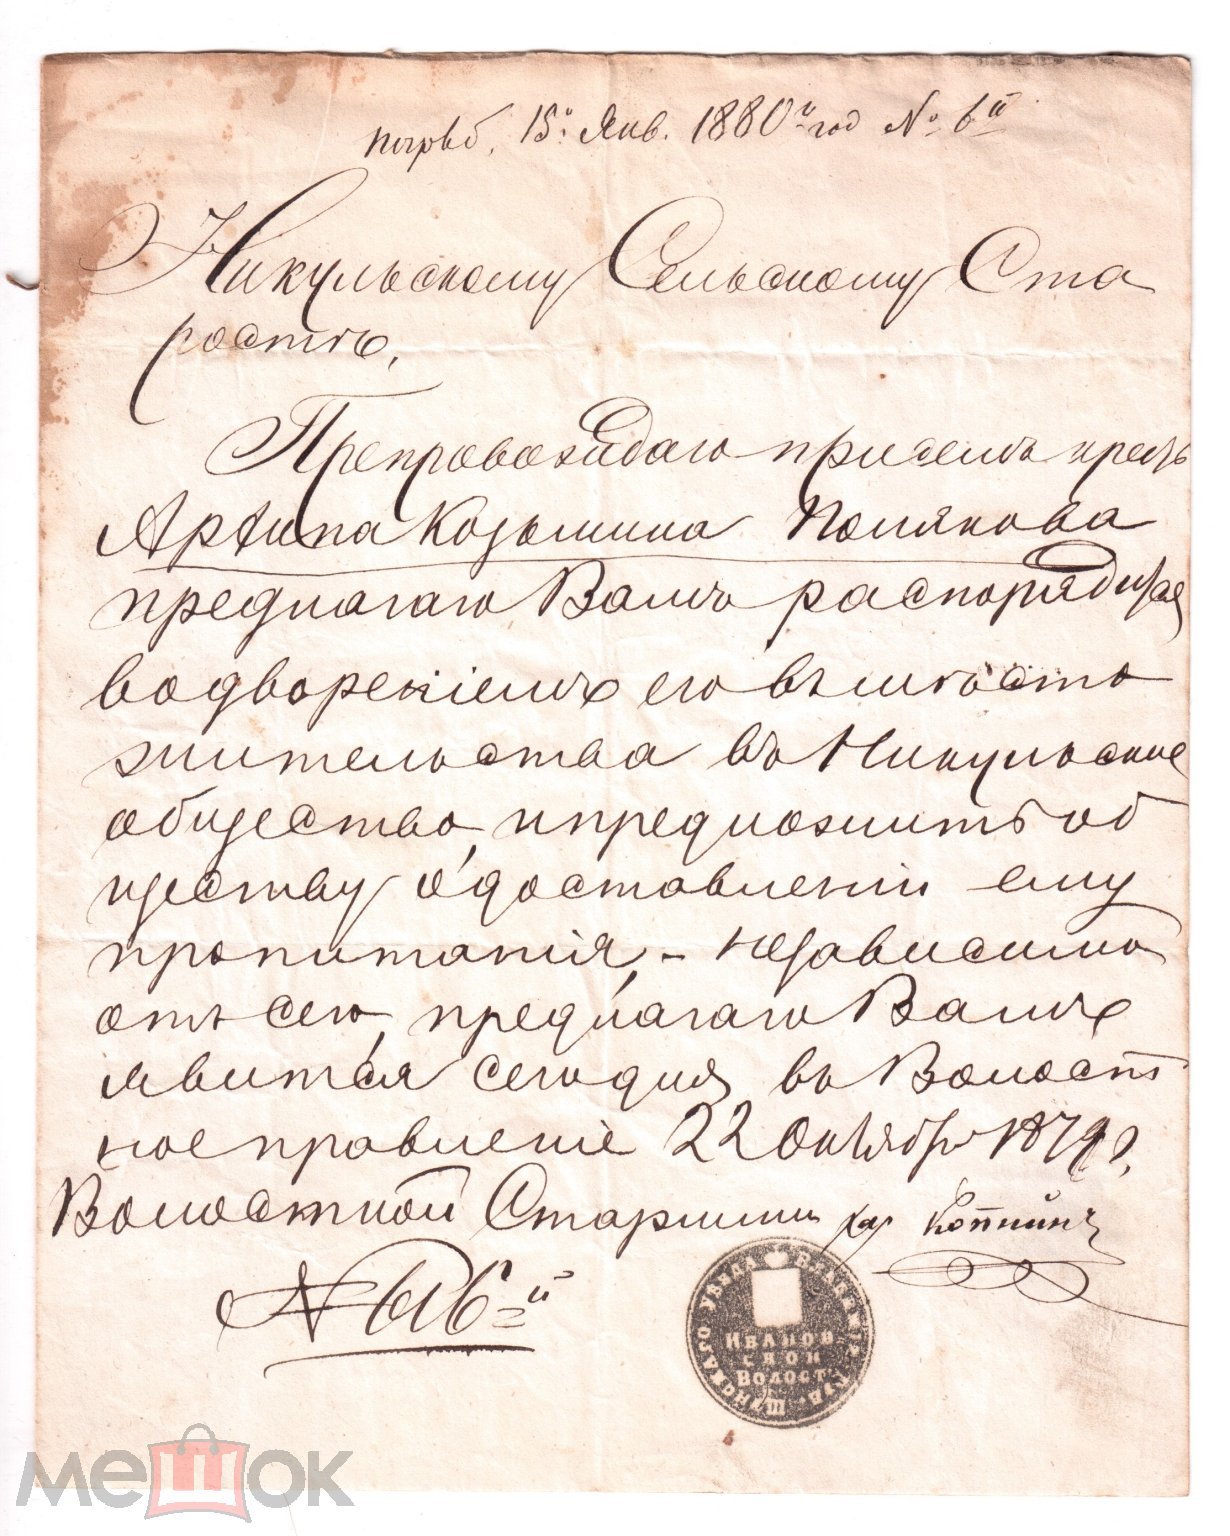 15го Янв. 1880го год № 6й
Никульскому Сельскому Ста
ростѣ,
Препровождаю присемъ крест
Архипа Козьмина Полякова
предлагаю Вамъ распорядиться
водвореніемъ его въ мѣсто
жительства въ Никульское
общество, и предложить об
ществу о доставленіи ему
пропитанія, – независимо
отъ сего, предлагаю Вамъ
явится сегодня въ Волост
ное правленіе 22 Октября 1879 г.
Волостной Старшина Копнинъ
№ 616й
ШУЙСКАГО УѢЗДА ВЛАДИМІР. ГУБ.
ИВАНОВ
СКОЙ
ВОЛОСТ.
мешок